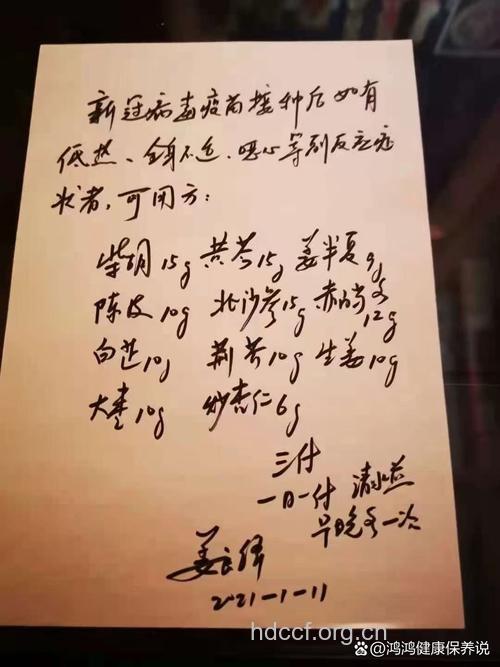 新冠病毒疫苗接种后如有
低热、全身不适、恶心等副反应症
状者,可用方:
柴胡15g 黄芩15g 姜半夏9g
陈皮10g 北沙参15g 赤芍 12g
白芷10g 荆芥10g 生姜10g
大枣10g 炒杏仁6g
三付
一日一付 清水煎
早晚各一次
姜良铎
2021-1-11
hdccf.org.cn
@鸿鸿健康保养说